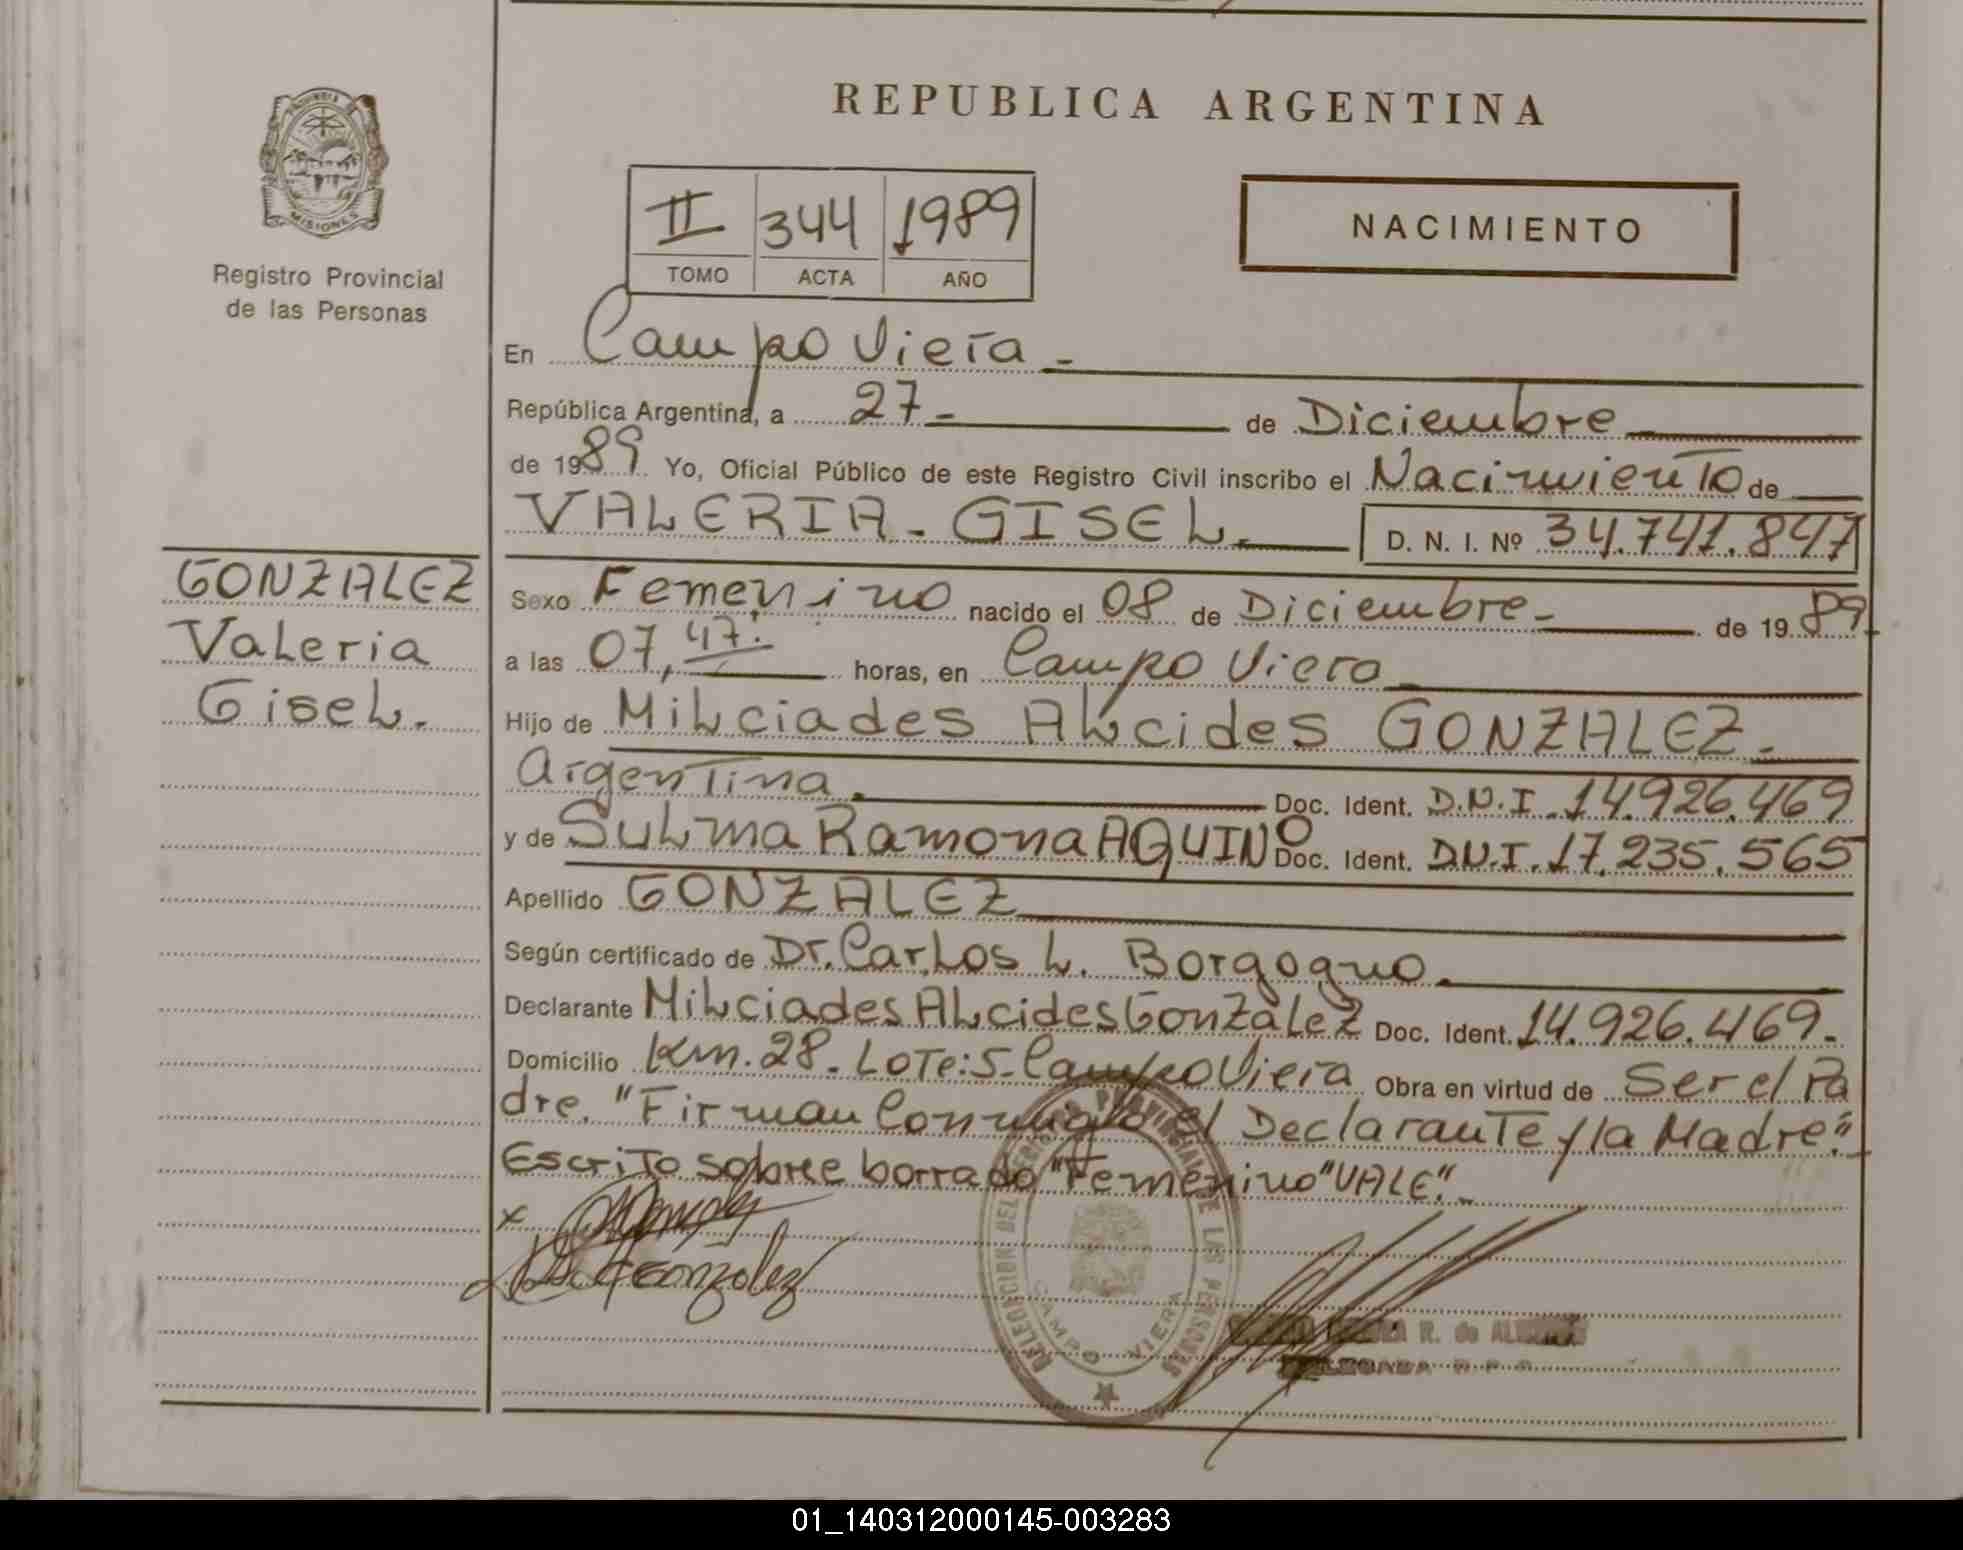 REPUBLICA ARGENTINA
MISIONES
Registro Provincial
de las Personas
II 344 1989
TOMO ACTA AÑO
NACIMIENTO
En Campo Viera -
República Argentina, a 27 - de Diciembre
de 1989 Yo, Oficial Público de este Registro Civil inscribo el Nacimiento de
VALERIA - GISEL. D. N. I. Nº 34.741.847
GONZALEZ
Valeria
Gisel.
Sexo Femenino nacido el 08 de Diciembre - de 1989
a las 07,47. horas, en Campo Viera
Hijo de Milciades Alcides GONZALEZ.
Argentina. Doc. Ident. D.N.I. 14.926.469
y de Sulma Ramona AQUINO Doc. Ident. D.N.I. 17.235.565
Apellido GONZALEZ
Según certificado de Dr. Carlos L. Borgogno.
Declarante Milciades Alcides Gonzalez Doc. Ident. 14.926.469.
Domicilio Km. 28. Lote: 5- Campo Viera Obra en virtud de Ser el Pa
dre. "Firman Conmigo el Declarante y la Madre".
Escrito sobre borrado "Femenino" VALE".
x
Gonzalez
DELEGACION DEL REGISTRO PROVINCIAL DE LAS PERSONAS
CAMPO VIERA
R. de
01_140312000145-003283